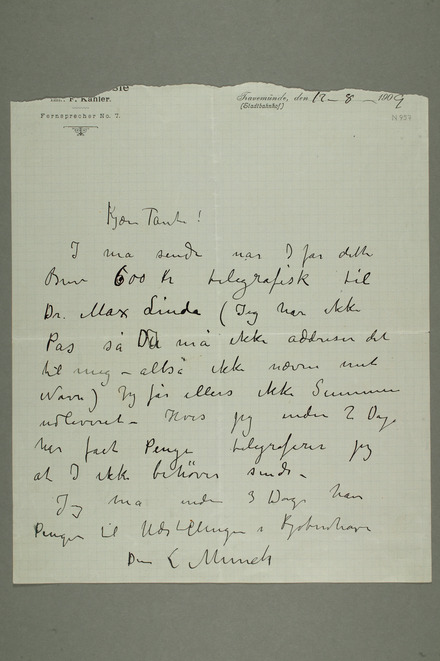 Inh.: F. Kähler.
Fernsprecher No. 7.
Travemünde, den 12 – 8 – 1909
(Stadtbahnhof)
N 957
Kjære Tante!
I må sende når I får dette
Brev 600 Kr telegrafisk til
Dr. Max Linde (Jeg har ikke
Pas så Du må ikke addresere det
til meg – altså ikke nævne mit
Navn) Jeg får ellers ikke Summen
udleveret – Hvis jeg inden 2 Dage
har fået Penge telegraferer jeg
at I ikke behøver sende –
Jeg må inden 3 Dage have
Penger til Udstillingen i Kjøbenhavn
Din E Munch